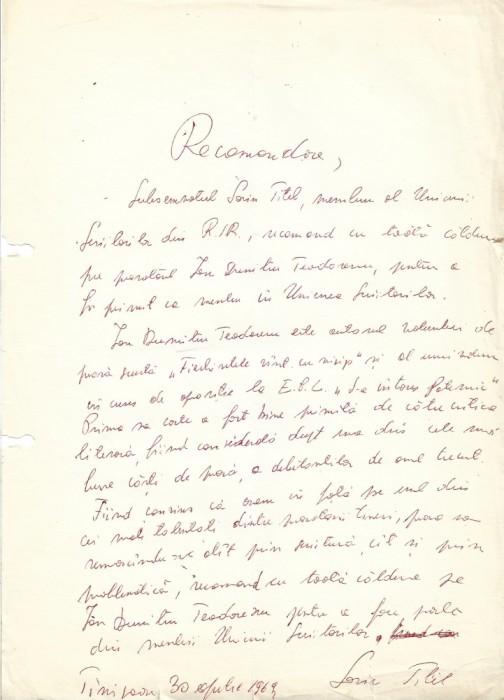 Recomandare,
Subsemnatul Sorin Titel, membru al Uniunii
Scriitorilor din R.S.R., recomand cu toată căldura
pe prozatorul Ion Dumitru Teodorescu, pentru a
fi primit ca membru în Uniunea Scriitorilor.
Ion Dumitru Teodorescu este autorul volumului de
proză scurtă „Fierbintele vînt cu nisip" și al unui volum
în curs de apariție la E.P.L. „S-a întors
Prima sa carte a fost bine primită de către critica
literară, fiind considerată drept una din cele mai
bune cărți de proză, a debutanților de anul trecut.
Fiind convins că avem în față pe unul din
cei mai talentați dintre prozatorii tineri, proza sa
remarcîndu-se atît prin scriitură, cît și prin
problematică, recomand cu toată căldura pe
Ion Dumitru Teodorescu pentru a face parte
din membrii Uniunii Scriitorilor,
Timișoara, 30 aprilie 1969 Sorin Titel